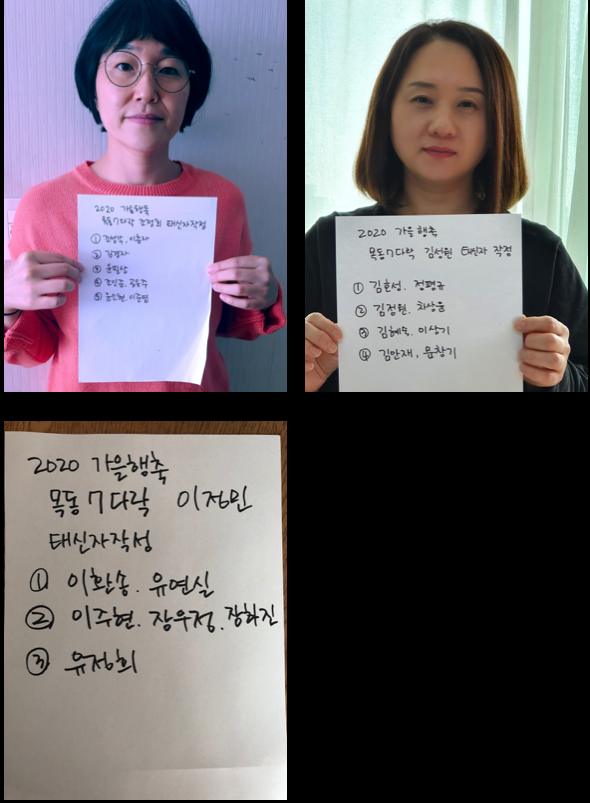 2020 가을행축
목동7다락 조정희 태신자작정
①
② 김경자
③ 윤필상
④
⑤ 이준범
2020 가을행축
목동7다락 김성원 태신자 작정
① 김효성, 정평균
② 김정원, 차상윤
③ 김혜숙, 이상기
④ 김안재, 문창기
2020 가을행축
목동7다락 이정민
태신자작성
① 이환송. 유연실
② 이주현. 장우정. 장하진
③ 유정희